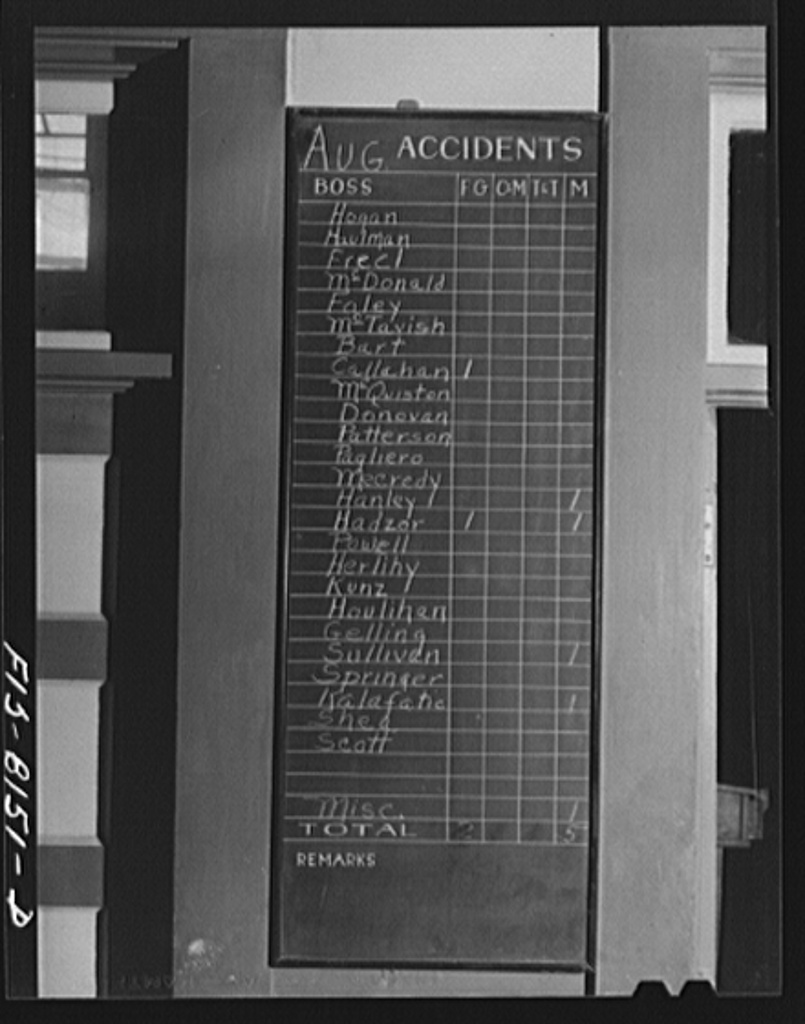 AUG ACCIDENTS
BOSS FG O.M T&T M
Hogan
Haulman
Erecl
McDonald
Faley
McTavish
Bart
Callahan 1
McQuiston
Donovan
Patterson
Pagliero
Mccredy
Hanley 1
Hadzor 1 1
Powell
Herlihy
Kunz
Houlihan
Gelling
Sullivan 1
Springer
Kalafatic 1
Shea
Scott
Misc. 1
TOTAL 2 5
REMARKS
F15-8151-D